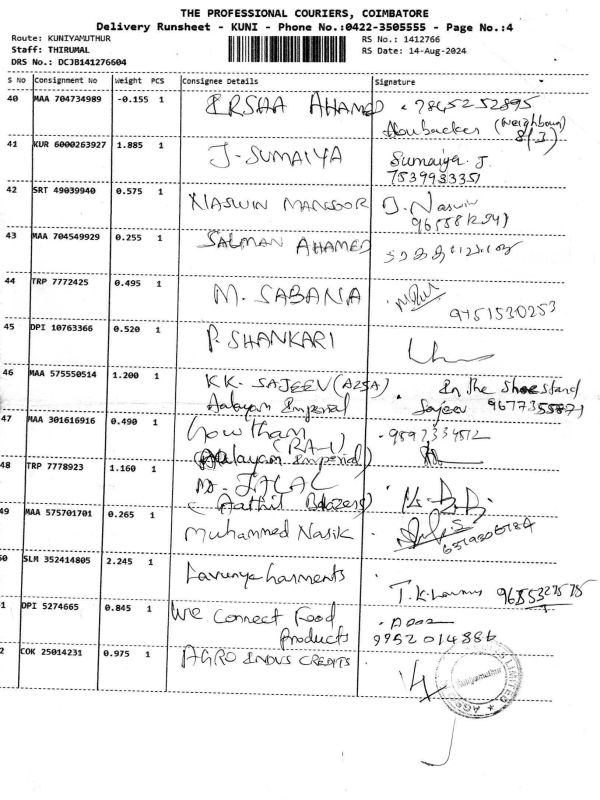 THE PROFESSIONAL COURIERS, COIMBATORE
Delivery Runsheet - KUNI - Phone No.:0422-3505555 - Page No.:4
Route: KUNIYAMUTHUR
RS No.: 1412766
Staff: THIRUMAL
RS Date: 14-Aug-2024
DRS No.: DCJB141276604
S No Consignment No Weight PCS Consignee Details Signature
40 MAA 704734989 -0.155 1 ERSHA AHAMED 9845252895
(Neighbour)
41 KUR 6000263927 1.885 1 J-SUMAIYA Sumaiya J
7539933351
42 SRT 49039940 0.575 1 NASWIN MANSOOR J. Naswin
43 MAA 704549929 0.255 1 SALMAN AHAMED
44 TRP 7772425 0.495 1 M. SABANA
9751530253
45 DPI 10763366 0.520 1 P. SHANKARI
46 MAA 575550514 1.200 1 K.K. SAJEEV (A25A) In the Shoe stand
Aalayam Imperial Sajeev 9677355871
47 MAA 301616916 0.490 1 Gowtham (RA-1) 9597334512
(Aalayam Imperial)
48 TRP 7778923 1.160 1 M. JALAL
49 MAA 575701701 0.265 1 Muhammed Nasik
50 SLM 352414805 2.245 1 Lavunya harments
9685327575
1 DPI 5274665 0.845 1 We Connect Food
Products 9952014886
2 COK 25014231 0.975 1 AGRO INDUS CREDITS